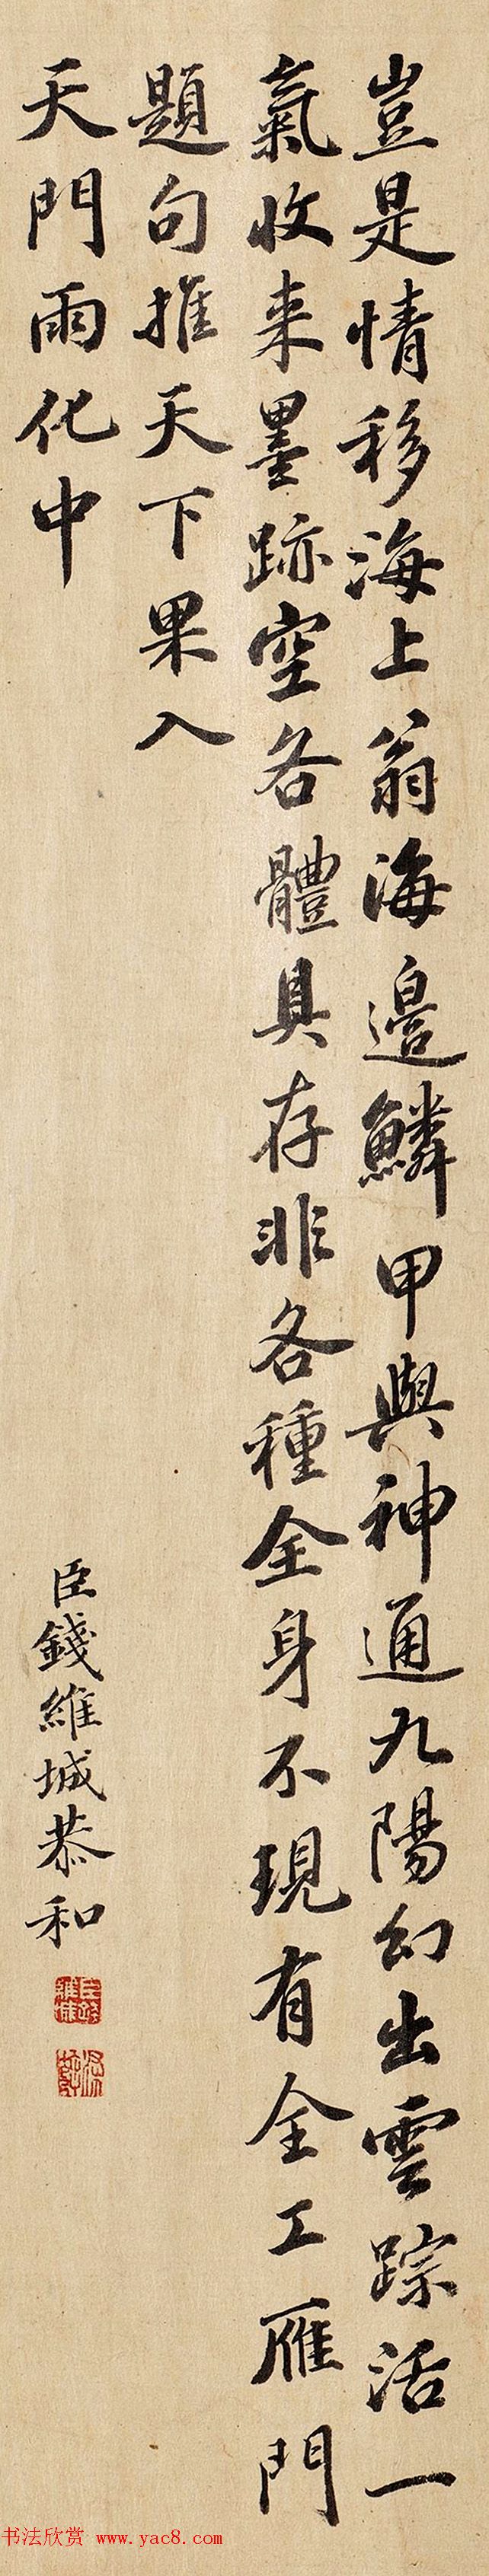 豈是情移海上翁海邊鱗甲與神通九陽幻出雲踪活一
氣收来墨跡空各體具存非各種全身不現有全工雁門
題句推天下果入
天門雨化中
臣錢維城恭和
书法欣赏 www.yac8.com